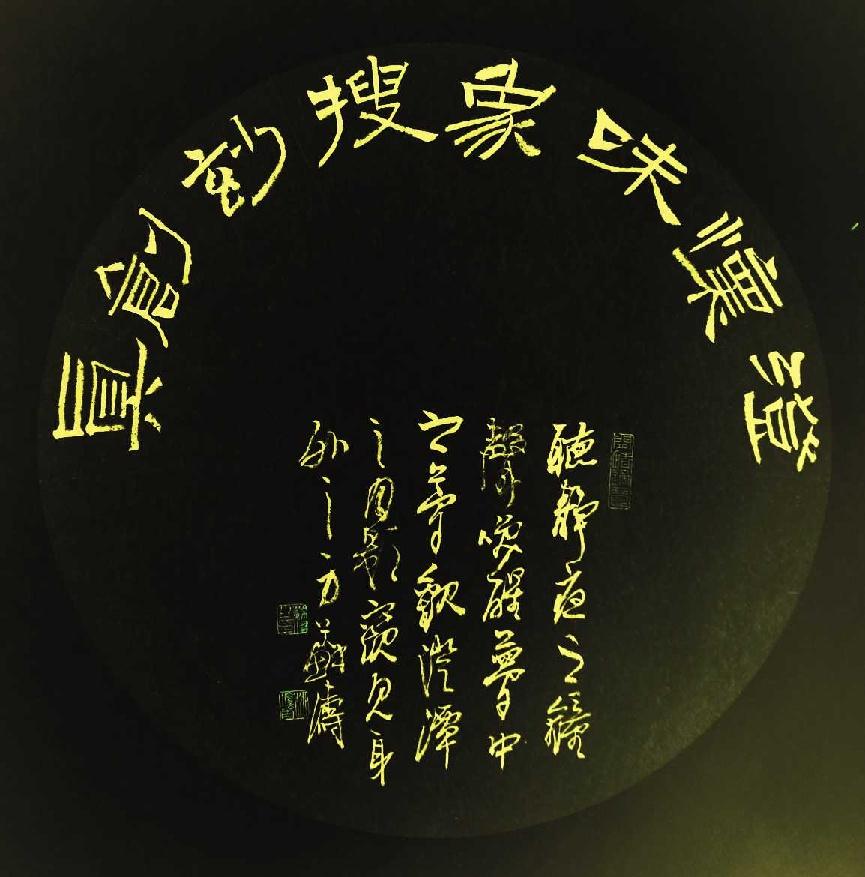 澄懷味象搜玅創真
聽靜夜之鐘
聲喚醒夢中
之夢觀澄潭
之月影窺見身
外之身